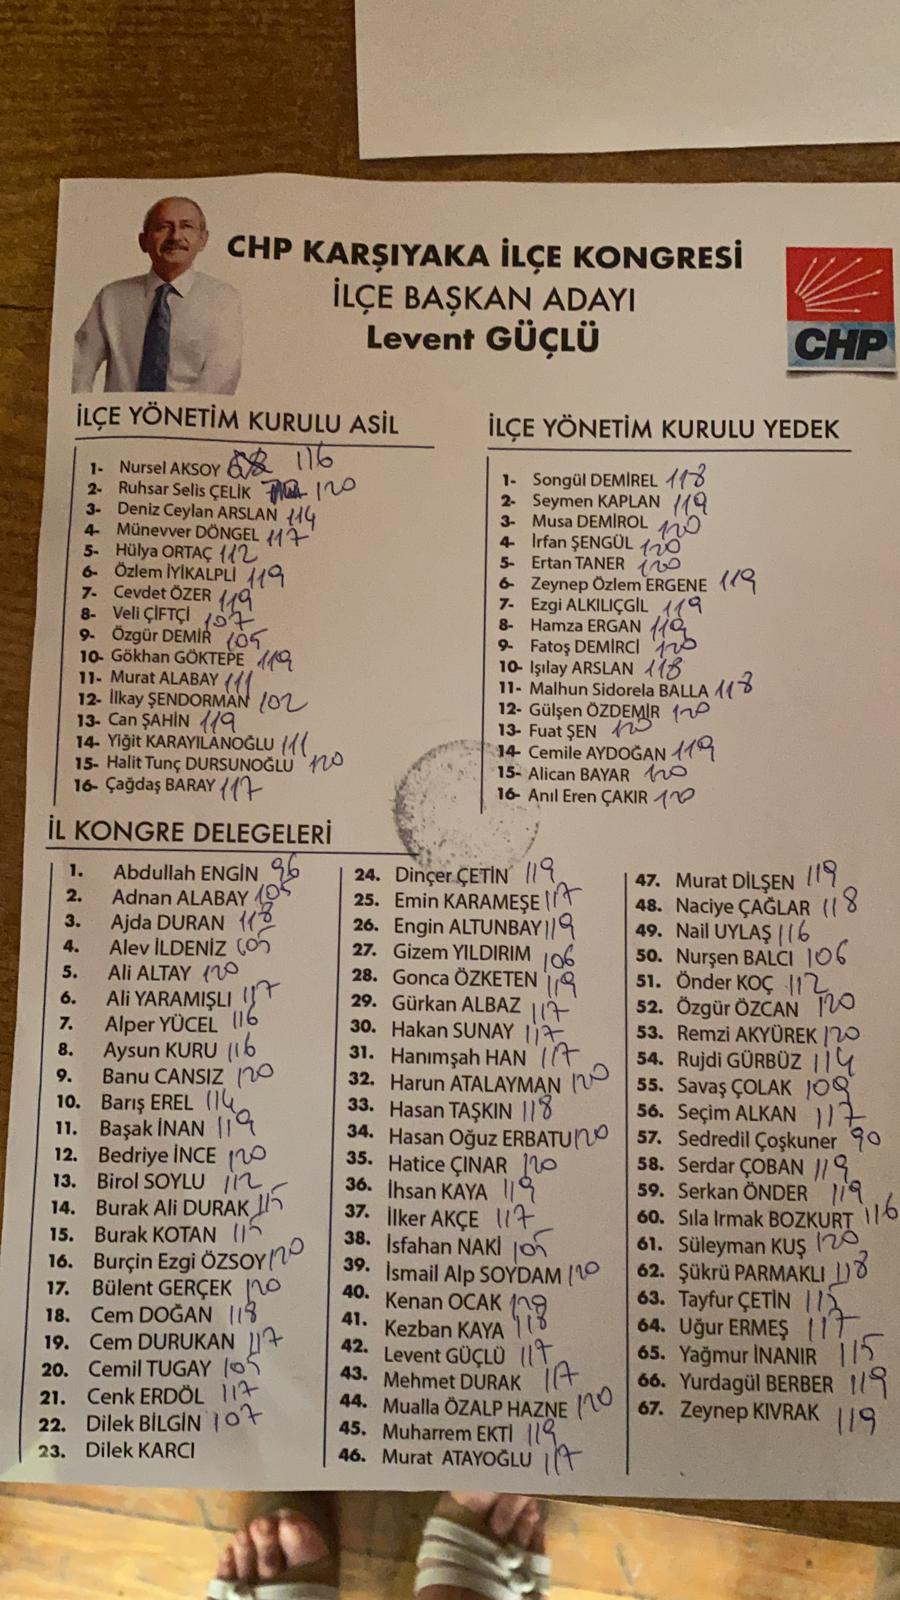 CHP KARŞIYAKA İLÇE KONGRESİ
İLÇE BAŞKAN ADAYI
Levent GÜÇLÜ
CHP
İLÇE YÖNETİM KURULU ASİL
1- Nursel AKSOY 116
2- Ruhsar Selis ÇELİK 120
3- Deniz Ceylan ARSLAN 114
4- Münevver DÖNGEL 117
5- Hülya ORTAÇ 112
6- Özlem İYİKALPLİ 119
7- Cevdet ÖZER 119
8- Veli ÇİFTÇİ 107
9- Özgür DEMİR 105
10- Gökhan GÖKTEPE 119
11- Murat ALABAY 111
12- İlkay ŞENDORMAN 102
13- Can ŞAHİN 119
14- Yiğit KARAYILANOĞLU 111
15- Halit Tunç DURSUNOĞLU 120
16- Çağdaş BARAY 117
İLÇE YÖNETİM KURULU YEDEK
1- Songül DEMİREL 118
2- Seymen KAPLAN 119
3- Musa DEMİROL 120
4- İrfan ŞENGÜL 120
5- Ertan TANER 120
6- Zeynep Özlem ERGENE 119
7- Ezgi ALKILIÇGİL 119
8- Hamza ERGAN 119
9- Fatoş DEMİRCİ 120
10- Işılay ARSLAN 118
11- Malhun Sidorela BALLA 118
12- Gülşen ÖZDEMİR 120
13- Fuat ŞEN 120
14- Cemile AYDOĞAN 119
15- Alican BAYAR 120
16- Anıl Eren ÇAKIR 120
İL KONGRE DELEGELERİ
1. Abdullah ENGİN 96
2. Adnan ALABAY 105
3. Ajda DURAN 118
4. Alev İLDENİZ 105
5. Ali ALTAY 120
6. Ali YARAMIŞLI 117
7. Alper YÜCEL 116
8. Aysun KURU 116
9. Banu CANSIZ 120
10. Barış EREL 114
11. Başak İNAN 119
12. Bedriye İNCE 120
13. Birol SOYLU 112
14. Burak Ali DURAK 115
15. Burak KOTAN 115
16. Burçin Ezgi ÖZSOY 120
17. Bülent GERÇEK 120
18. Cem DOĞAN 118
19. Cem DURUKAN 117
20. Cemil TUGAY 105
21. Cenk ERDÖL 117
22. Dilek BİLGİN 107
23. Dilek KARCI
24. Dinçer ÇETİN 119
25. Emin KARAMEŞE 117
26. Engin ALTUNBAY 119
27. Gizem YILDIRIM 106
28. Gonca ÖZKETEN 119
29. Gürkan ALBAZ 117
30. Hakan SUNAY 117
31. Hanımşah HAN 117
32. Harun ATALAYMAN 120
33. Hasan TAŞKIN 118
34. Hasan Oğuz ERBATU 120
35. Hatice ÇINAR 120
36. İhsan KAYA 119
37. İlker AKÇE 117
38. İsfahan NAKİ 105
39. İsmail Alp SOYDAM 120
40. Kenan OCAK
41. Kezban KAYA 118
42. Levent GÜÇLÜ 117
43. Mehmet DURAK 117
44. Mualla ÖZALP HAZNE 120
45. Muharrem EKTİ 119
46. Murat ATAYOĞLU 117
47. Murat DİLŞEN 119
48. Naciye ÇAĞLAR 118
49. Nail UYLAŞ 116
50. Nurşen BALCI 106
51. Önder KOÇ 112
52. Özgür ÖZCAN 120
53. Remzi AKYÜREK 120
54. Rujdi GÜRBÜZ 114
55. Savaş ÇOLAK 109
56. Seçim ALKAN 117
57. Sedredil Çoşkuner 90
58. Serdar ÇOBAN 119
59. Serkan ÖNDER 119
60. Sıla Irmak BOZKURT 116
61. Süleyman KUŞ 120
62. Şükrü PARMAKLI 118
63. Tayfur ÇETİN 115
64. Uğur ERMEŞ 117
65. Yağmur İNANIR 115
66. Yurdagül BERBER 119
67. Zeynep KIVRAK 119